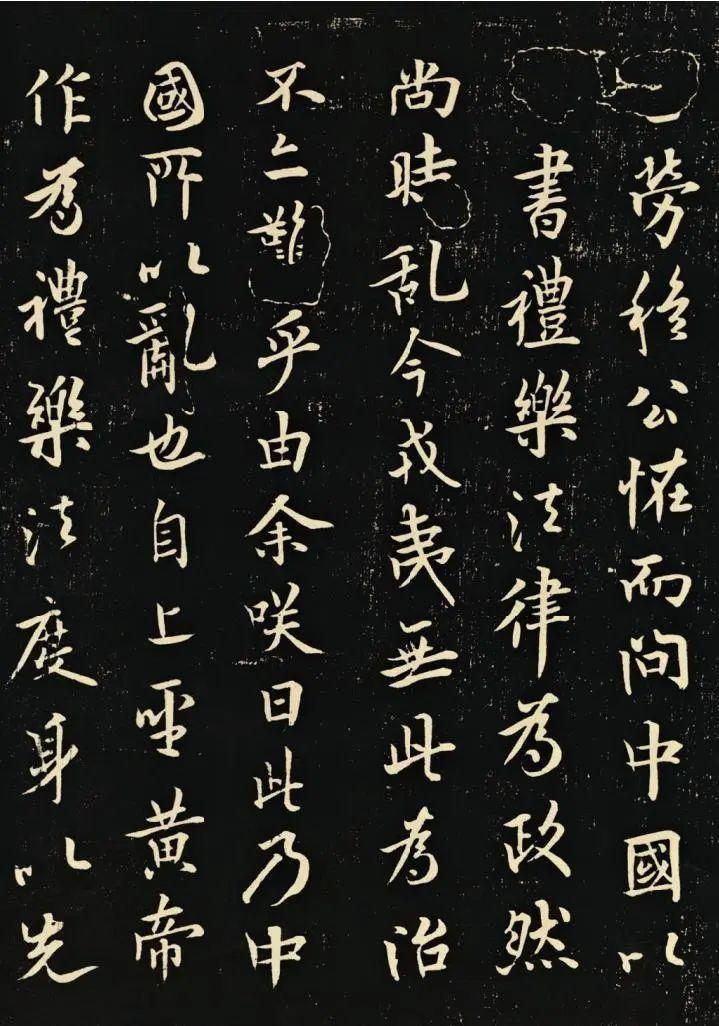 勞穆公恠而問中國以
書禮樂法律為政然
尚時乱今戎夷無此為治
不亦難乎由余咲曰此乃中
國所以亂也自上聖黃帝
作為禮樂法度身以先